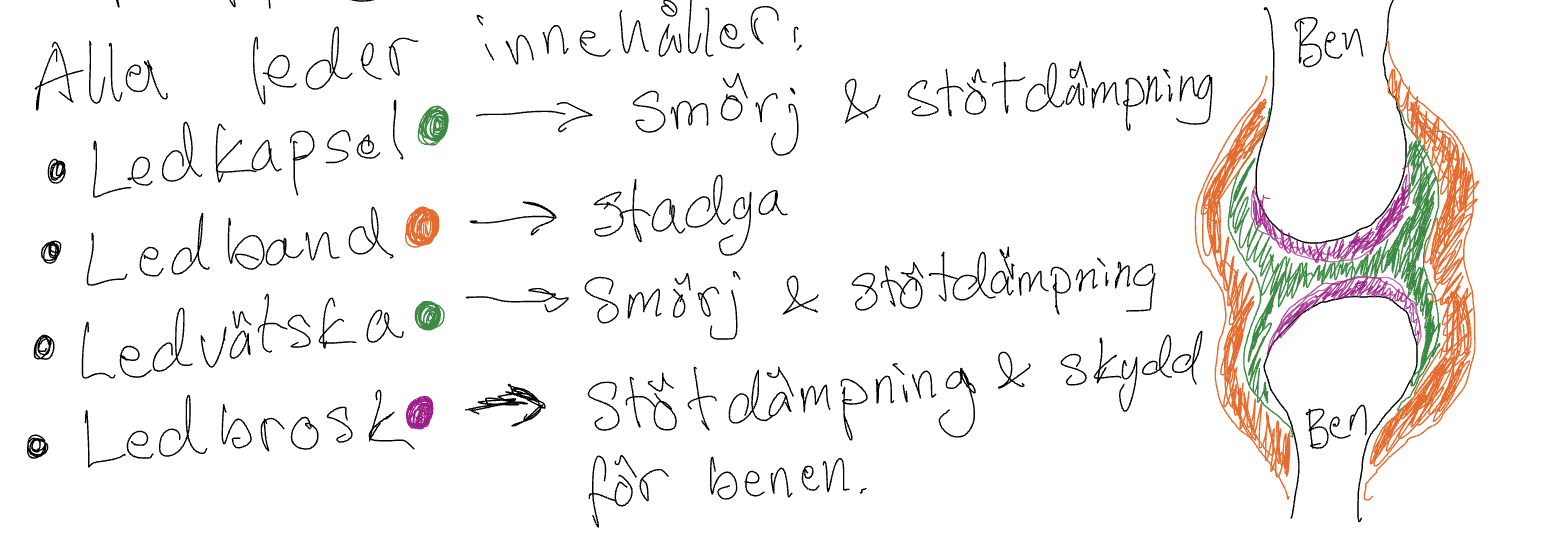 Alla leder innehåller:
• Ledkapsel → Smörj & stötdämpning
• Ledband → stadga
• Ledvätska → Smörj & stötdämpning
• Ledbrosk → Stötdämpning & skydd
för benen.
Ben
Ben